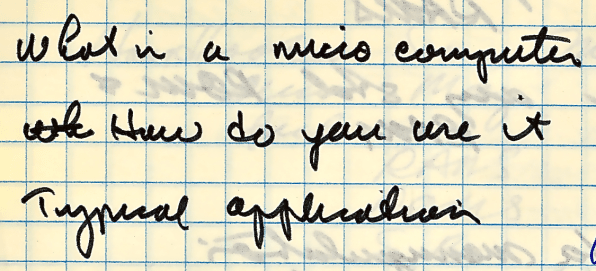 What is a micro computer
How do you use it
Typical application